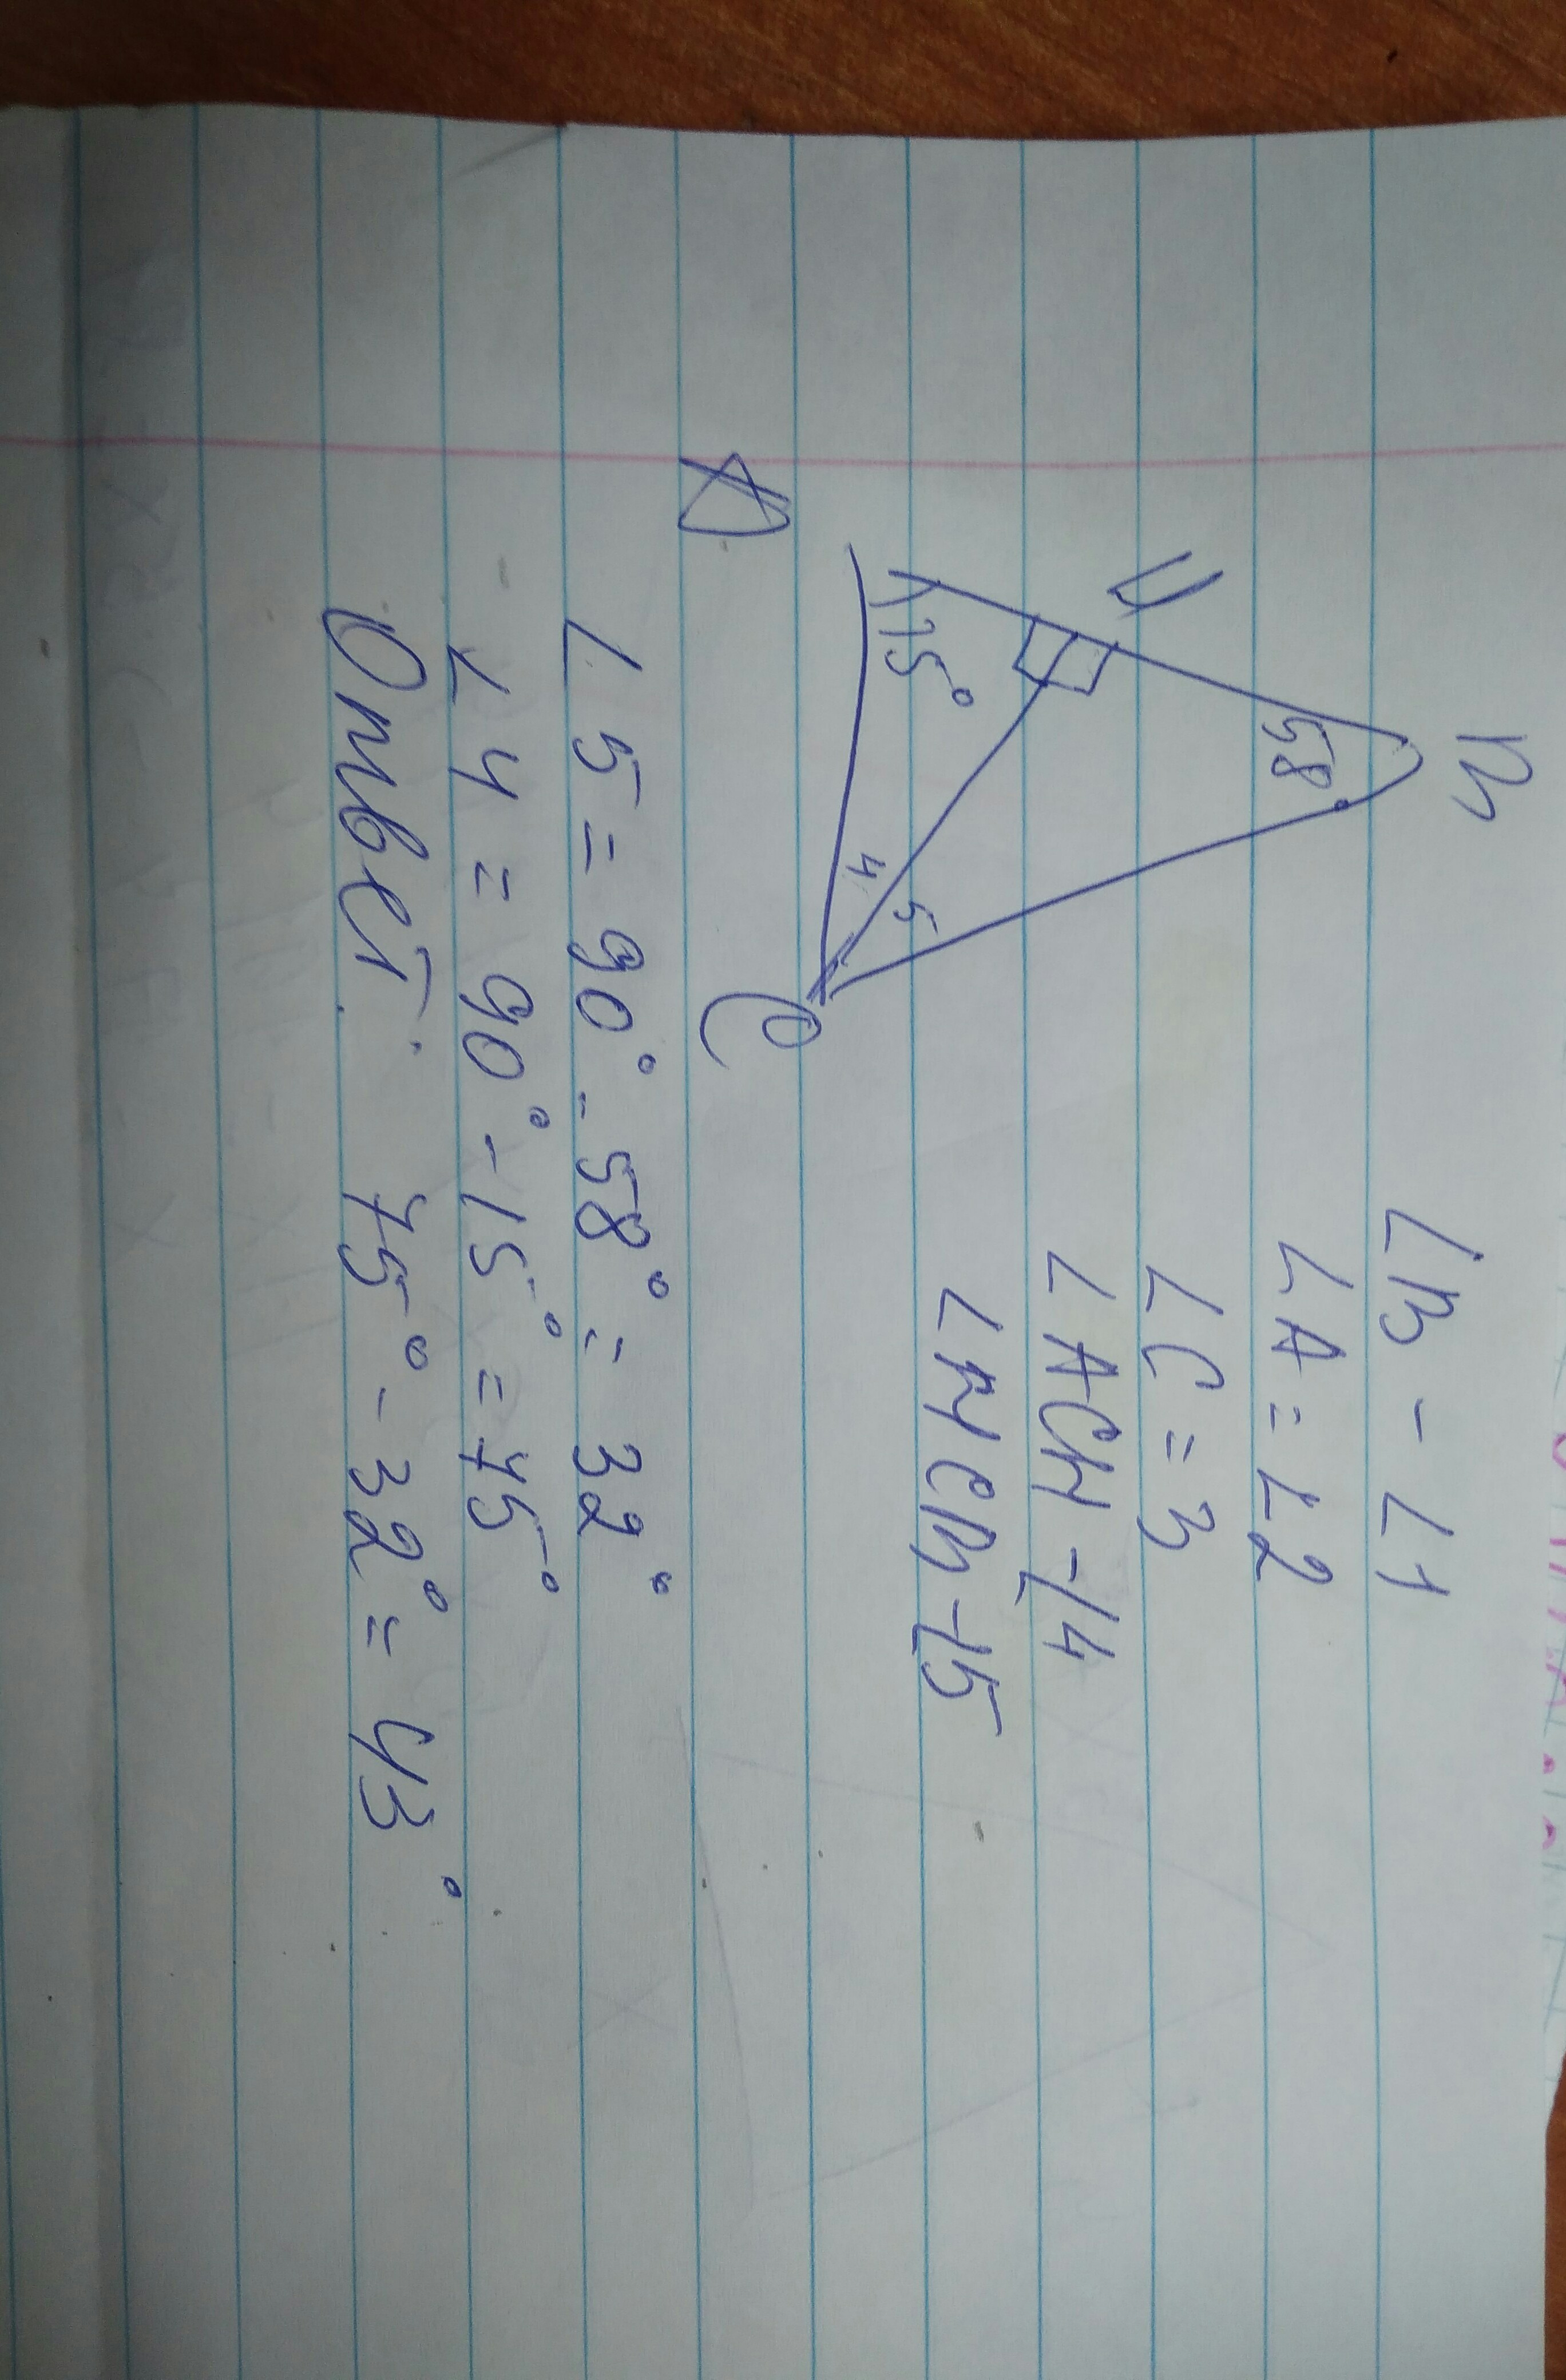 B
H
58°
15°
4
5
A
C
∠B - ∠1
∠A = ∠2
∠C = 3
∠ACH - ∠4
∠HCB - ∠5
∠5 = 90° - 58° = 32°
∠4 = 90° - 15° = 75°
Ответ: 75° - 32° = 43°